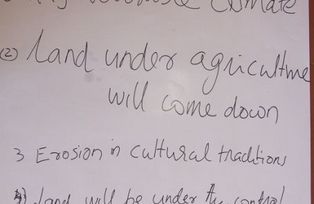 Climate
(2) Land under agriculture
will come down
3 Erosion in cultural traditions
4) Land will be under the control